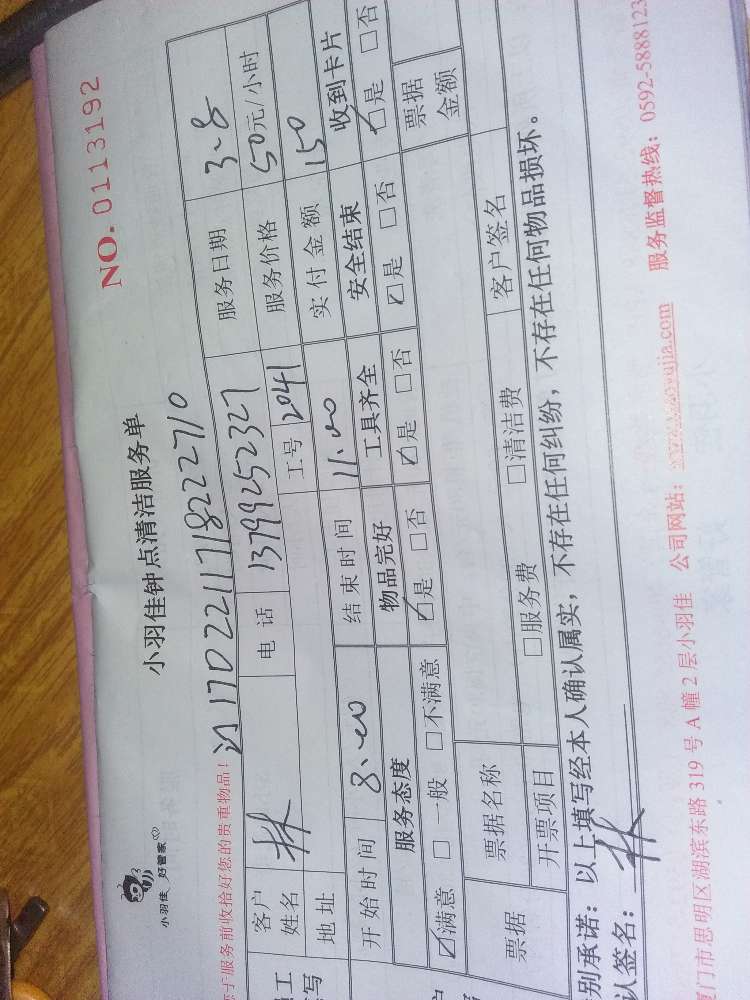 小羽佳 好管家
小羽佳钟点清洁服务单
NO. 0113192
于服务前收拾好您的贵重物品！
1702211718222710
客户姓名 林 电话 13799252327 服务日期 3.8
地址 工号 2041 服务价格 50元/小时
开始时间 8.00 结束时间 11.00 实付金额 150
服务态度 物品完好 工具齐全 安全结束 收到卡片
☑满意 □一般 □不满意 ☑是 □否 ☑是 □否 ☑是 □否 ☑是 □否
票据 票据名称 票据金额
开票项目 □服务费 □清洁费 客户签名
别承诺：以上填写经本人确认属实，不存在任何纠纷，不存在任何物品损坏。
认签名：林
门市思明区湖滨东路 319 号 A 幢 2 层小羽佳 公司网站： 服务监督热线：0592-5888123